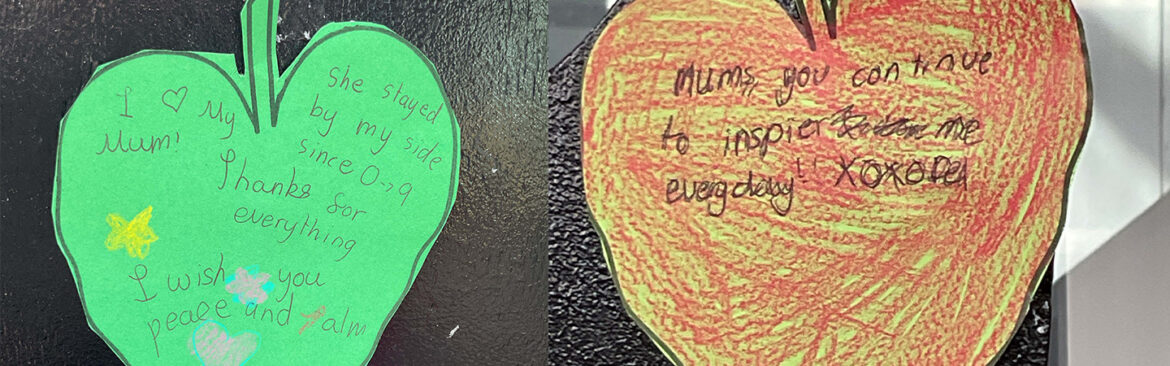 I ♡ My
Mum!
She stayed
by my side
since 0->9
Thanks for
everything
I wish you
peace and
alm
Mums, you continue
to inspier me
everyday!! XOXO